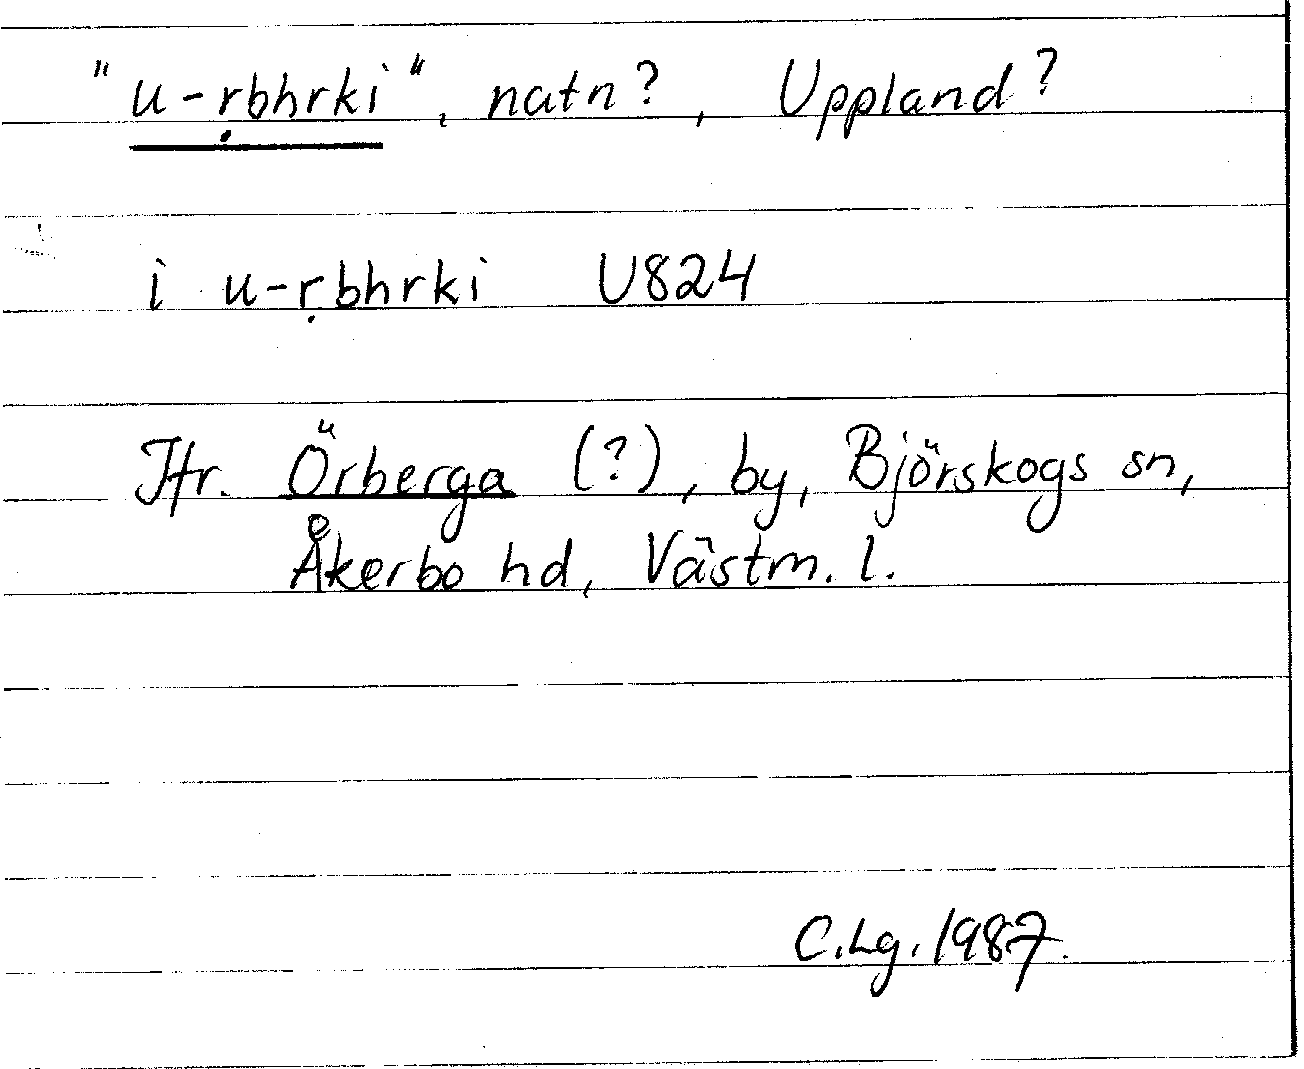 "u-ṛbhrki", natn?, Uppland?
i u-ṛbhrki U824
Jfr. Örberga (?), by, Björskogs sn,
Åkerbo hd, Västm. l.
C.Lg. 1987.